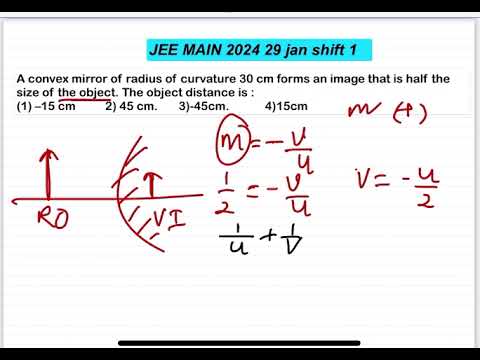 JEE MAIN 2024 29 jan shift 1
A convex mirror of radius of curvature 30 cm forms an image that is half the
size of the object. The object distance is :
(1) –15 cm 2) 45 cm. 3)-45cm. 4)15cm
m (+)
m = - v/u
1/2 = - v/u
v = - u/2
RO
VI
1/u + 1/v